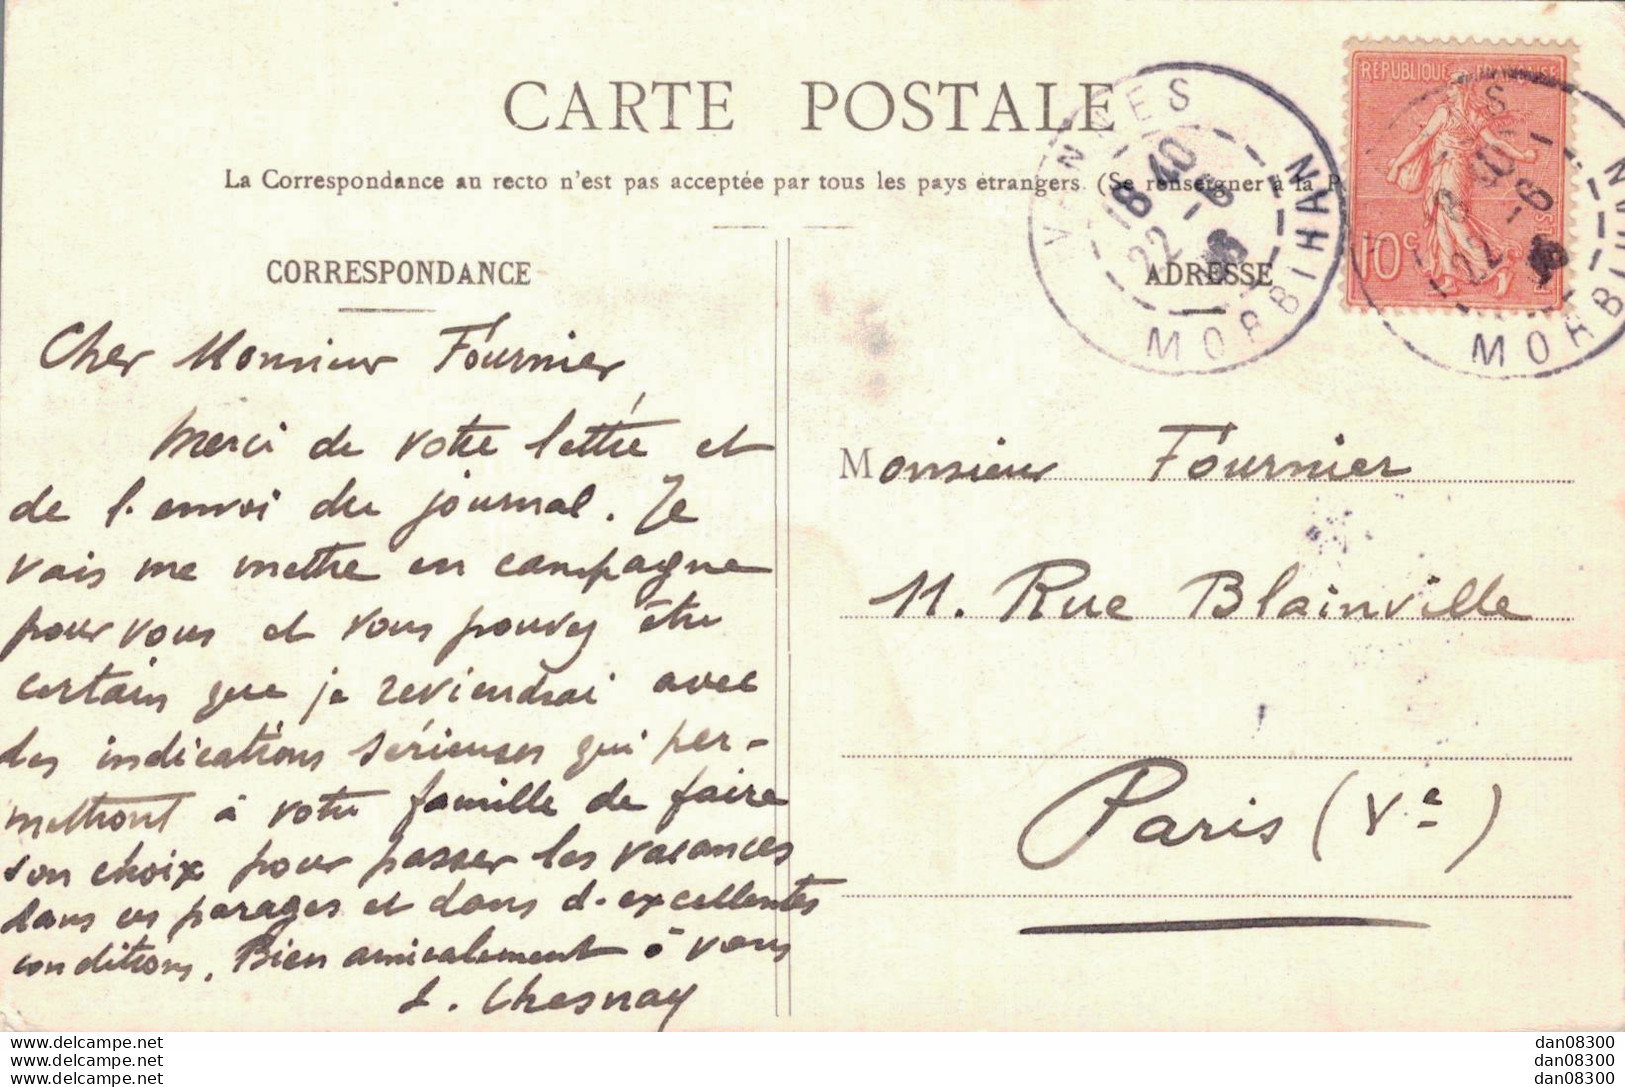 CARTE POSTALE
La Correspondance au recto n'est pas acceptée par tous les pays étrangers (Se renseigner à la P
CORRESPONDANCE
Cher Monsieur Fournier,
Merci de votre lettre et
de l'envoi du journal. Je
vais me mettre en campagne
pour vous et vous pouvez être
certain que je reviendrai avec
des indications sérieuses qui per-
mettront à votre famille de faire
son choix pour passer les vacances
dans ces parages et dans d'excellentes
conditions. Bien amicalement à vous
L. Chesnay
ADRESSE
Monsieur Fournier
11. Rue Blainville
Paris (Ve)
VANNES
8 40
22 - 6
MORBIHAN
REPUBLIQUE FRANÇAISE
10c
POSTES
8 40
22 - 6
MORBIHAN
dan08300
dan08300
dan08300
dan08300
dan08300
dan08300